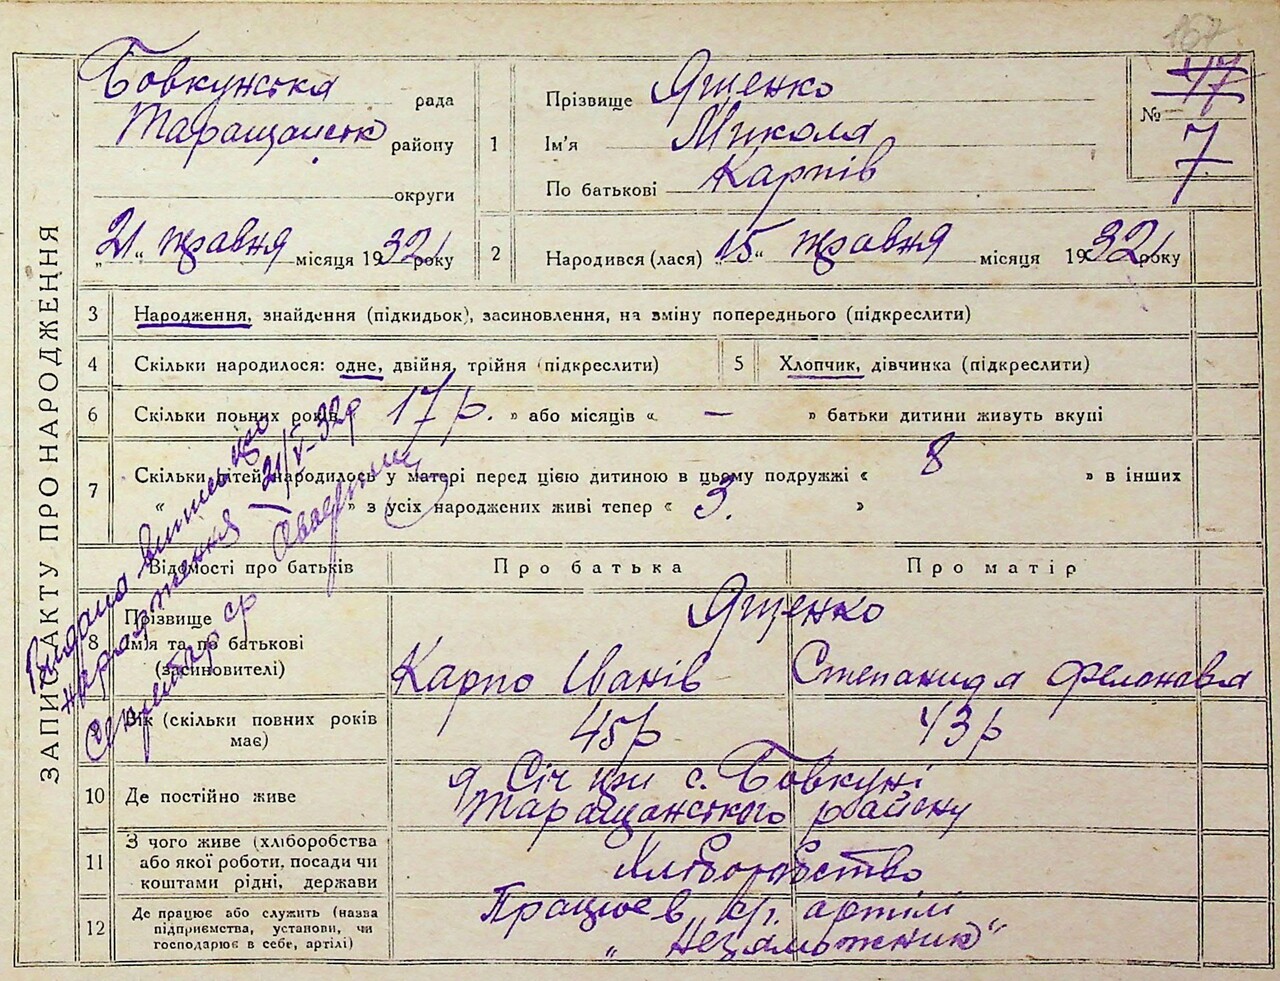 167
ЗАПИС АКТУ ПРО НАРОДЖЕННЯ
Бовкунська рада
Таращанськ району
округи
„21“ травня місяця 1932 року
1
Прізвище Ященко
Ім'я Микола
По батькові Карпів
№ 47
7
2 Народився (лася) „15“ травня місяця 1932 року
3 Народження, знайдення (підкидьок), засиновлення, на зміну попереднього (підкреслити)
4 Скільки народилося: одне, двійня, трійня (підкреслити)
5 Хлопчик, дівчинка (підкреслити)
6 Скільки повних років 17 р. » або місяців « — » батьки дитини живуть вкупі
7 Скільки дітей народилось у матері перед цією дитиною в цьому подружжі « 8 » в інших
« — » з усіх народжених живі тепер « 3. »
Видана витяг про
народження 21/V-32р
Секретар ср
Відомості про батьків
Про батька
Про матір
8 Прізвище
Ім'я та по батькові
(засиновителі)
Ященко
Карпо Іванів
Степанида Фелонавва
Вік (скільки повних років
має)
45р
43р
10 Де постійно живе
Січ с. Бовкуні
Таращанського району
11 З чого живе (хліборобства
або якої роботи, посади чи
коштами рідні, держави
Хліборобство
12 Де працює або служить (назва
підприємства, установи, чи
господарює в себе, артілі)
Працює в с/г. артілі
„Незаможник“